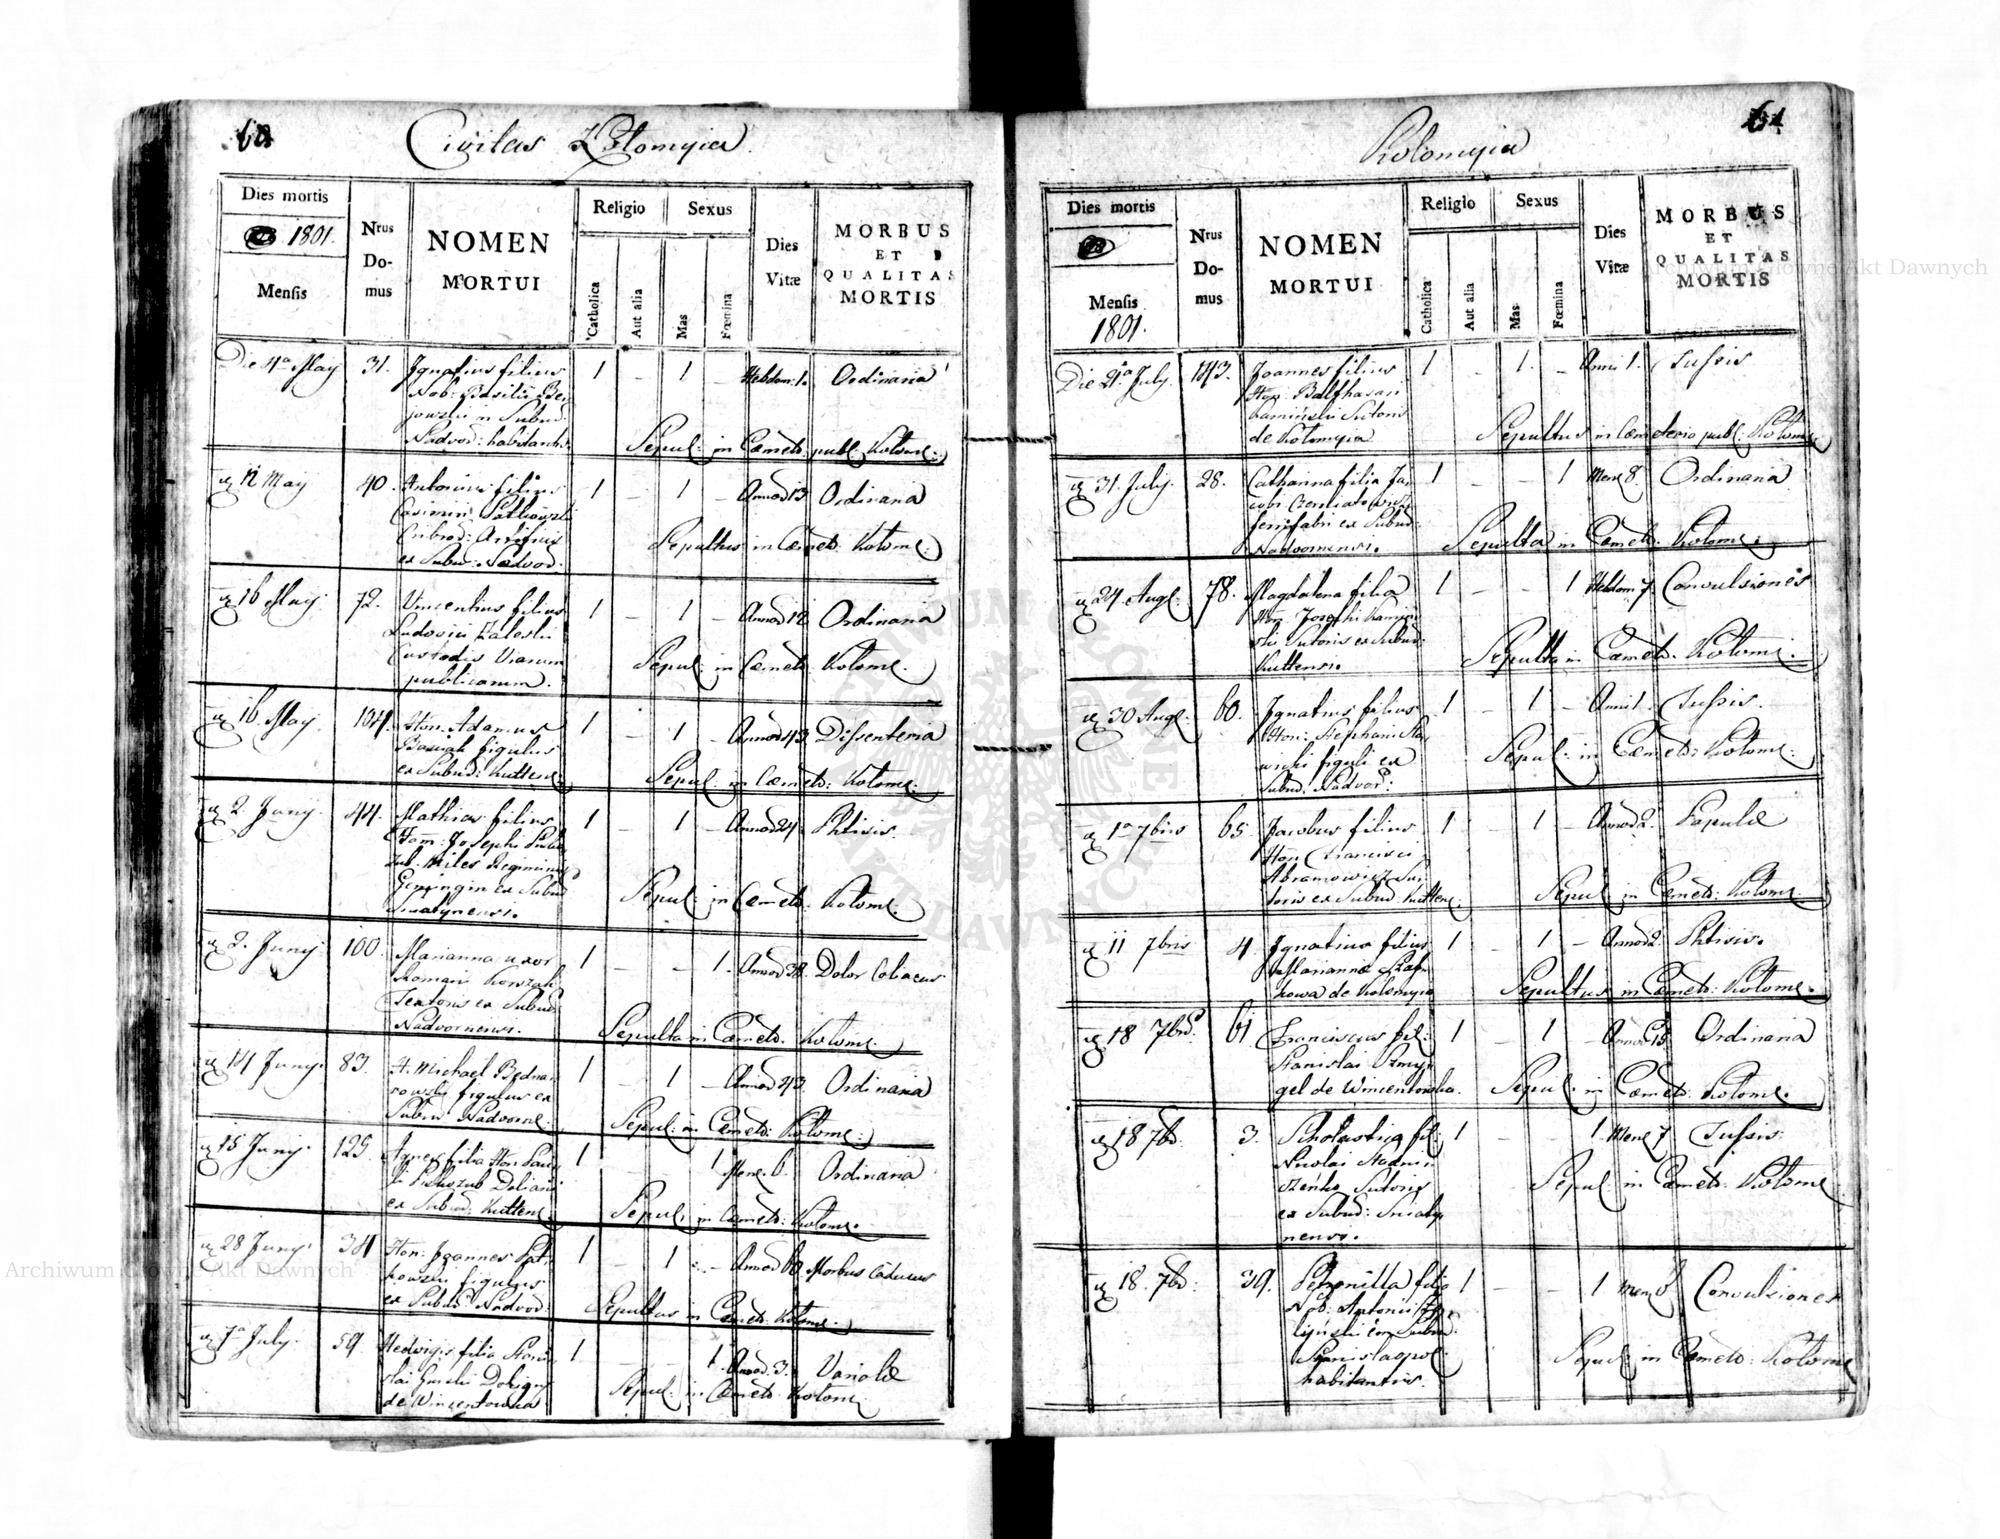 60
Civitas Kolomyia.
Dies mortis
1801.
Mensis
Nrus
Do-
mus
NOMEN
MORTUI
Religio
Sexus
Catholica
Aut alia
Mas
Fœmina
Dies
Vitæ
MORBUS
ET
QUALITAS
MORTIS
Die 4ª May
31.
Ignatius filius
Nob: Basilii
in Subur:
Nadvor: habitantis
1 - 1 - Hebdom: 1. Ordinaria
Sepul: in Cœmet: publ: Kolome:
12 May
40.
Antonius filius
Casimiri
Artificis
ex Subur: Nadvor:
1 - 1 - Annor 13 Ordinaria
Sepultus in Cœmet: Kolome:
16 May
72.
Vincentius filius
Ludovici Zaleski
Custodis Viarum
publicarum.
1 - 1 - Annor 12 Ordinaria
Sepul: in Cœmet: Kolome:
16. May
104.
Hon: Adamus
figulus
ex Subur: Kuttens:
1 - 1 - Annor 43 Dissenteria
Sepul: in Cœmet: Kolome:
2. Juny
44.
Mathias filius
Hon: Josephi
Miles Regiminis
ex Subur:
Sniatynensi.
1 - 1 - Annor 24. Phtisis.
Sepul: in Cœmet: Kolome:
2. Juny
100.
Marianna uxor
Romani
Textoris ex Subur:
Nadvornensi.
1 - - 1. Annor 38. Dolor Coliacus
Sepulta in Cœmet: Kolome:
14 Juny.
83.
H: Michael Bedna-
rowski figulus ex
Subur: Nadvorne:
1 - 1 - Annor 43. Ordinaria
Sepul: in Cœmet: Kolome:
15 Juny.
125.
Agnes filia Hon: Pau-
li
ex Subur: Kuttens:
1 - - 1 Mens. 6. Ordinaria
Sepul: in Cœmet: Kolome.
28 Juny.
34
Hon: Joannes
figulus
ex Subur: Nadvor:
1 - 1 - Annor 60. Morbus Caducus
Sepultus in Cœmet: Kolome.
7ª July.
59.
Hedvigis filia Stanis-
lai
de Wincentowka
1 - - 1. Annor 3. Variolæ
Sepul: in Cœmet: Kolome:
61.
Kolomyia
Dies mortis
Mensis
1801.
Nrus
Do-
mus
NOMEN
MORTUI
Religio
Sexus
Catholica
Aut alia
Mas
Fœmina
Dies
Vitæ
MORBUS
ET
QUALITAS
MORTIS
Die 21ª July.
143.
Joannes filius
Hon: Balthasari
Kaminski Sutoris
de Kolomyia
1 - 1. - Anni 1. Tussis
Sepultus in Cœmeterio publ: Kolome:
31. July.
28.
Catharina filia Ja-
cobi
ferrifabri ex Subur:
Nadvornensi.
1 - - 1 Mens 8. Ordinaria
Sepulta in Cœmet: Kolome:
24 Aug:
78.
Magdalena filia
Hon: Josephi
Sutoris ex Subur:
Kuttensi.
1 - - 1 Hebdom 7. Convulsiones
Sepulta in Cœmet: Kolome:
30 Aug:
60.
Ignatius filius
Hon: Stephani
figuli ex
Subur: Nadvor:
1 - 1 - Anni 1. Tussis.
Sepul: in Cœmet: Kolome:
1ª 7bris
65.
Jacobus filius
Hon: Francisci
Abramowicz Su-
toris ex Subur: Kuttens:
1 - 1 - Annor 2. Papulæ
Sepul: in Cœmet: Kolome:
11 7bris
4.
Ignatius filius
Mariannæ
de Kolomyia
1 - 1 - Annor 2. Phtisis.
Sepultus in Cœmet: Kolome.
18 7bris
61
Franciscus fil:
Stanislai Szmy-
gel de Wincentowka.
1 - 1 - Annor 15 Ordinaria
Sepul: in Cœmet: Kolome.
18 7br.
3.
Scholastica fil:
Nicolai
Sutoris
ex Subur: Sniaty-
nensi.
1 - - 1. Mens 7 Tussis.
Sepul: in Cœmet: Kolome
18. 7br.
39.
Petronilla filia
Nob: Antonii
Subur:
Stanislaopol:
habitantis.
1 - - 1 Mens 6 Convulsiones
Sepul: in Cœmet: Kolome
Archiwum Główne Akt Dawnych
Archiwum Główne Akt Dawnych
ARCHIWUM GŁÓWNE AKT DAWNYCH